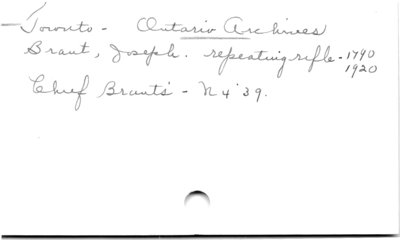 Toronto - Ontario Archives
Brant, Joseph. repeating rifle - 1790
1920
Chief Brant's - N 4 '39.